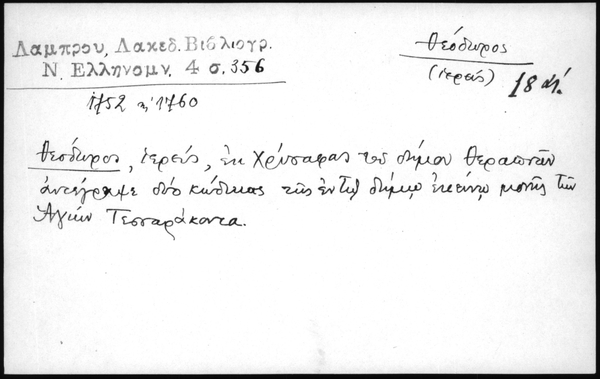 Λαμπρου, Λακεδ. Βιβλιογρ.
Ν. Ελληνομν. 4 σ. 356
1752 ἢ 1760
Θεόδωρος
(ἱερεύς)
18 αἰ.
Θεόδωρος, ἱερεύς, ἐκ Χρύσαφας τοῦ δήμου Θεραπνῶν
ἀντέγραψε δύο κώδικας τῆς ἐν τῷ δήμῳ ἐκείνῳ μονῆς τῶν
Ἁγίων Τεσσαράκοντα.